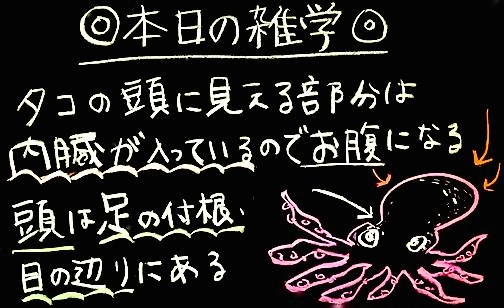 ◎本日の雑学◎
タコの頭に見える部分は
内臓が入っているのでお腹になる
頭は足の付根・
目の辺りにある